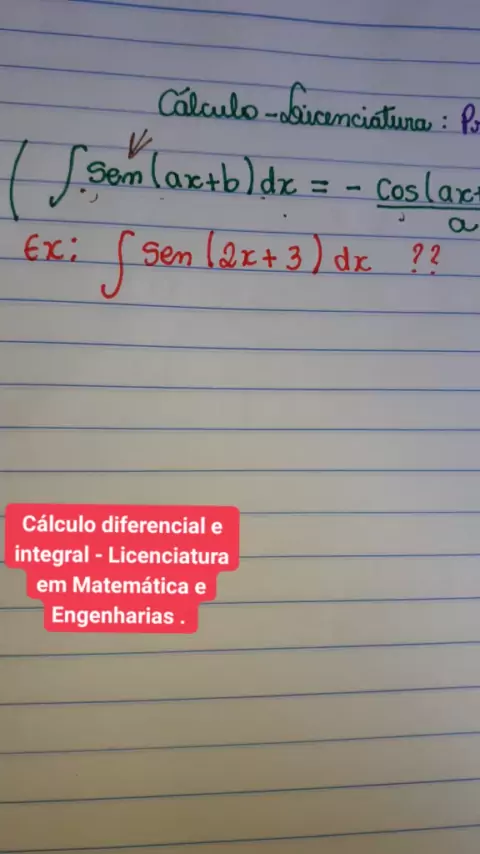 Cálculo - Licenciatura : Pr
( ∫ sen (ax+b) dx = - cos(ax+
a
Ex: ∫ sen (2x + 3) dx ??
Cálculo diferencial e
integral - Licenciatura
em Matemática e
Engenharias .